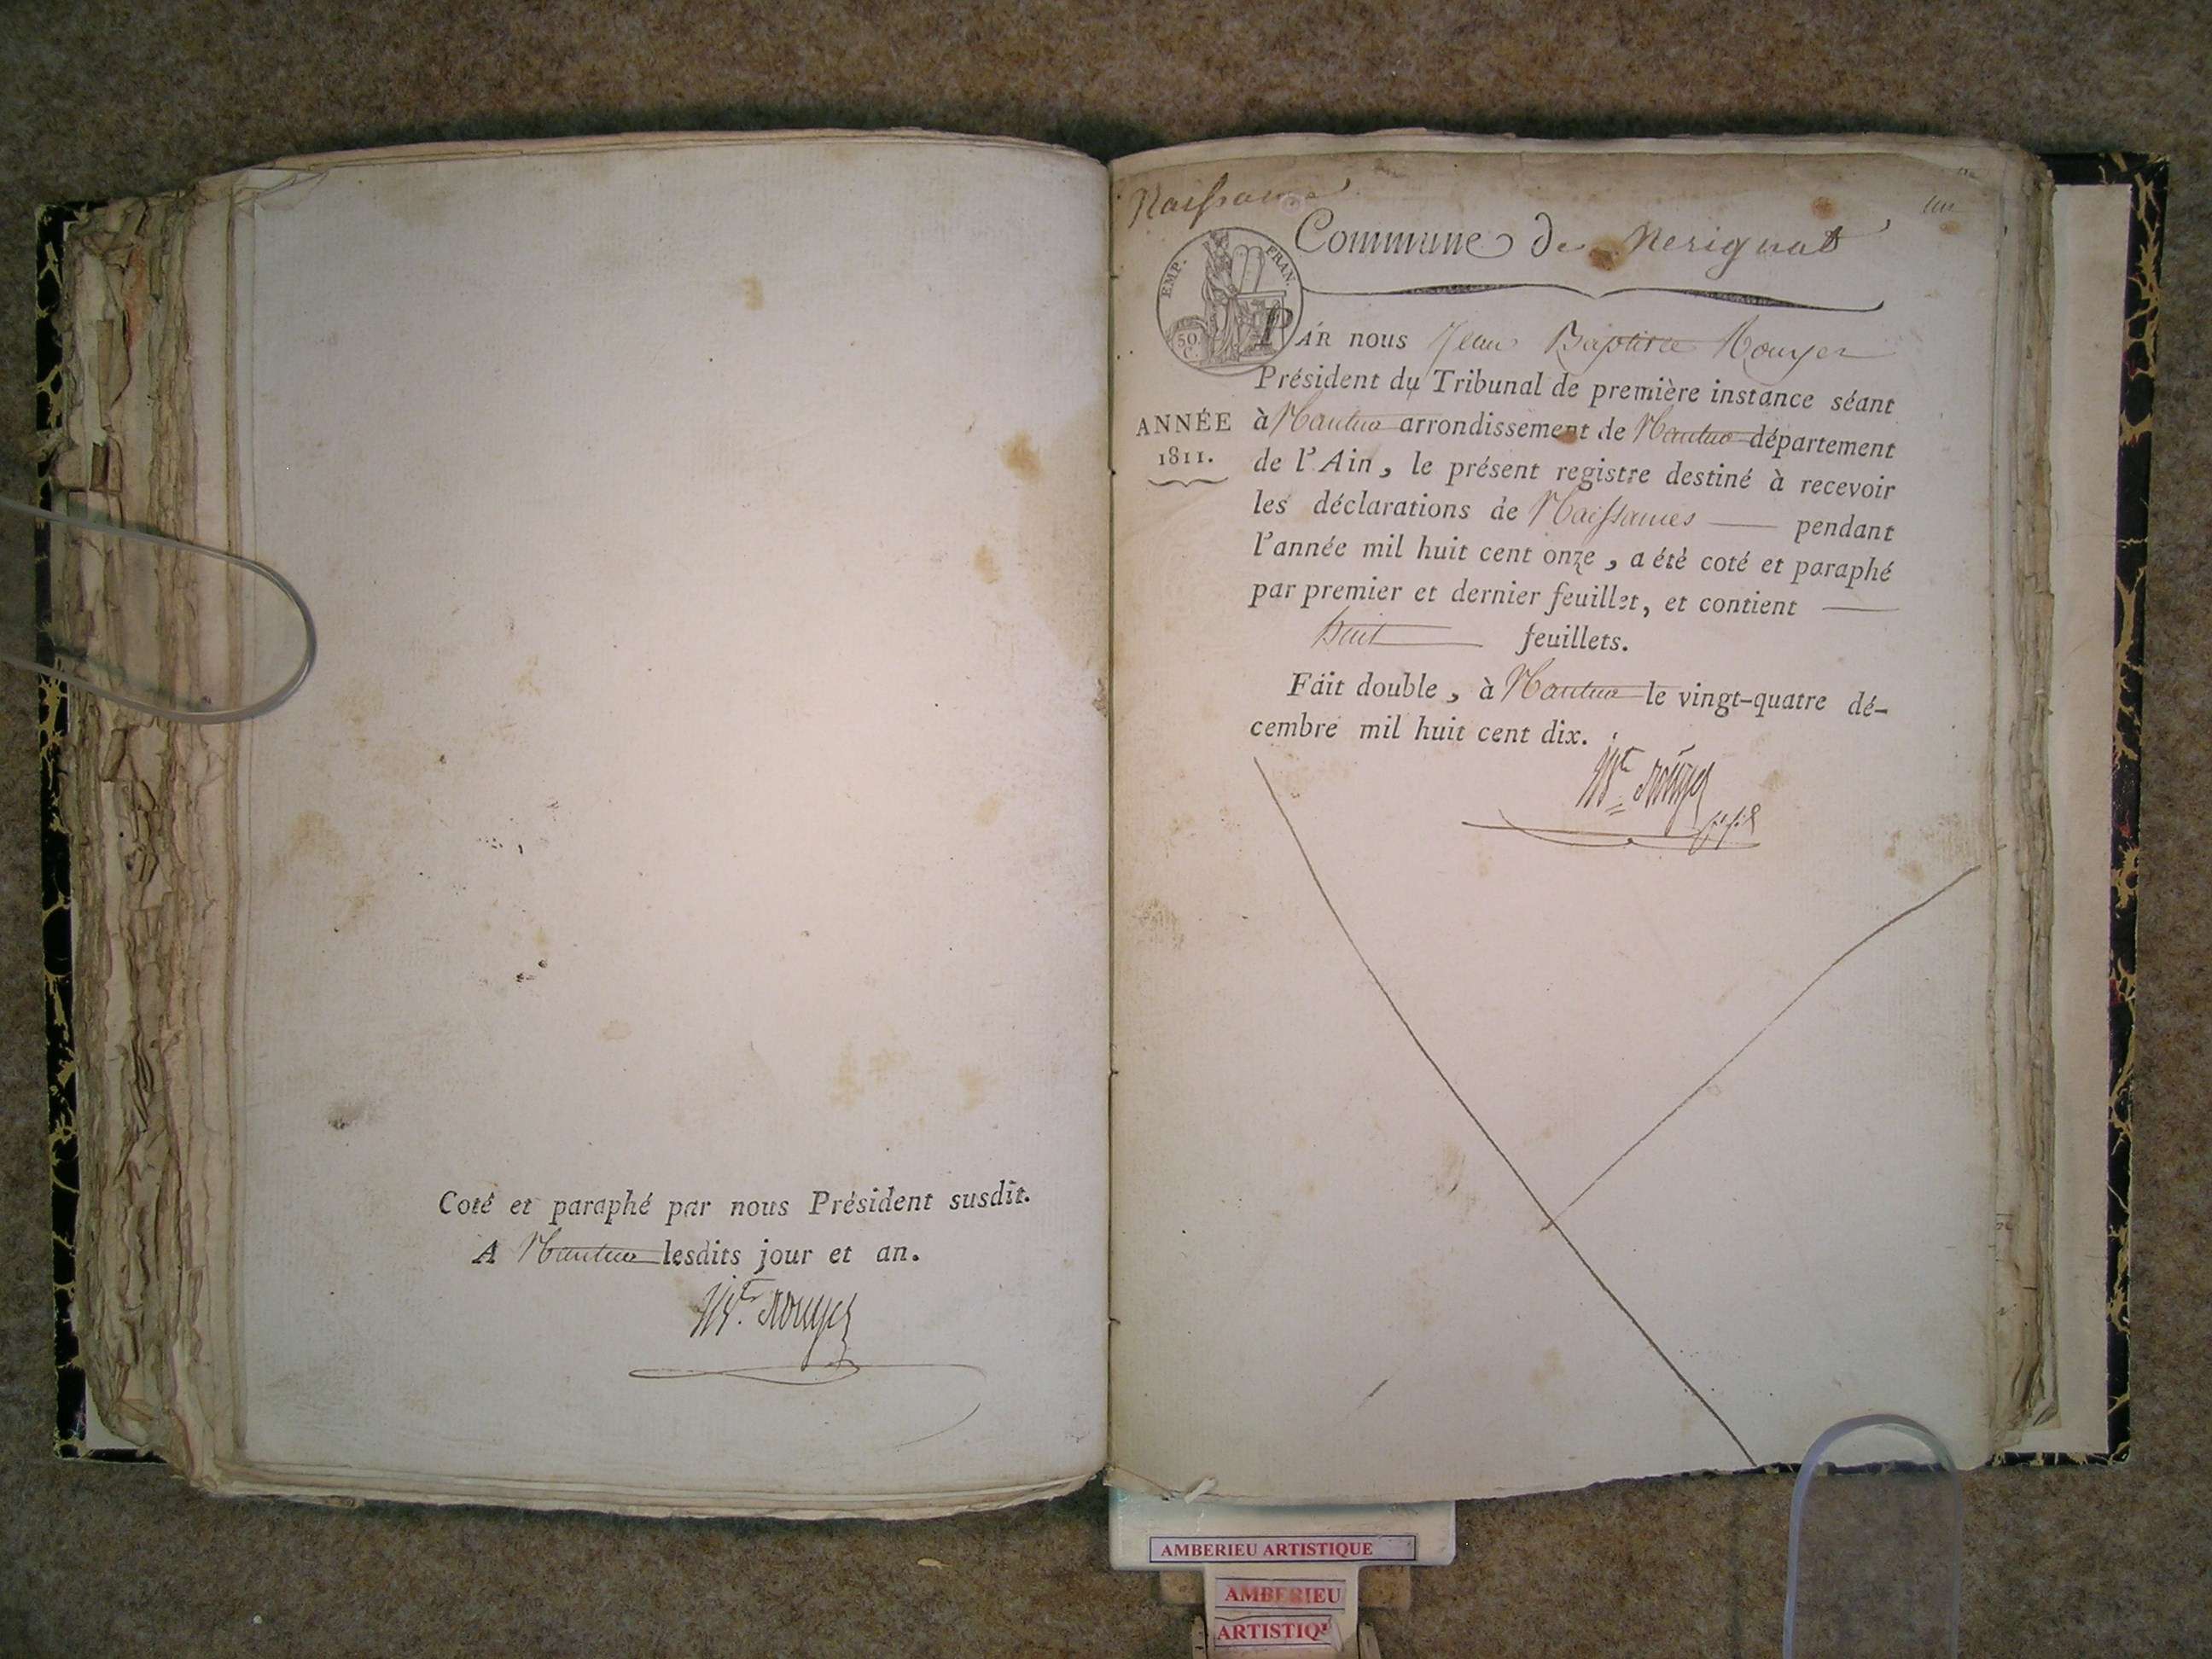 Coté et paraphé par nous Président susdit.
A Nantua lesdits jour et an.
Naissance
un
Commune de Nerignat
EMP. FRAN.
50 C.
PAR nous Jean Baptiste Rouyer
Président du Tribunal de première instance séant
à Nantua arrondissement de Nantua département
ANNÉE
1811.
de l'Ain, le présent registre destiné à recevoir
les déclarations de Naissances pendant
l'année mil huit cent onze, a été coté et paraphé
par premier et dernier feuillet, et contient
huit feuillets.
Fait double, à Nantua le vingt-quatre dé-
cembre mil huit cent dix.
AMBERIEU ARTISTIQUE
AMBERIEU
ARTISTIQ